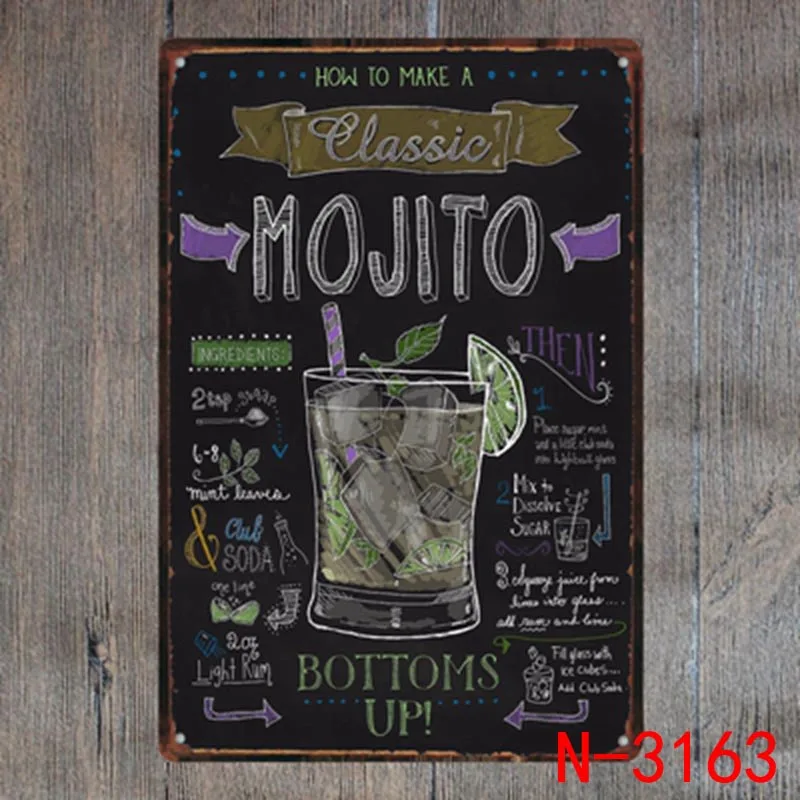 HOW TO MAKE A
Classic
MOJITO
INGREDIENTS:
2 tsp sugar
6-8
mint leaves
& Club
SODA
one lime
2oz
Light Rum
THEN
1
Place sugar, mint
and a little club soda
into highball glass
2 Mix to
Dissolve
Sugar
3. Squeeze juice from
lime into glass....
add rum and lime
Fill glass with
ice cubes....
Add Club Soda
BOTTOMS
UP!
N-3163